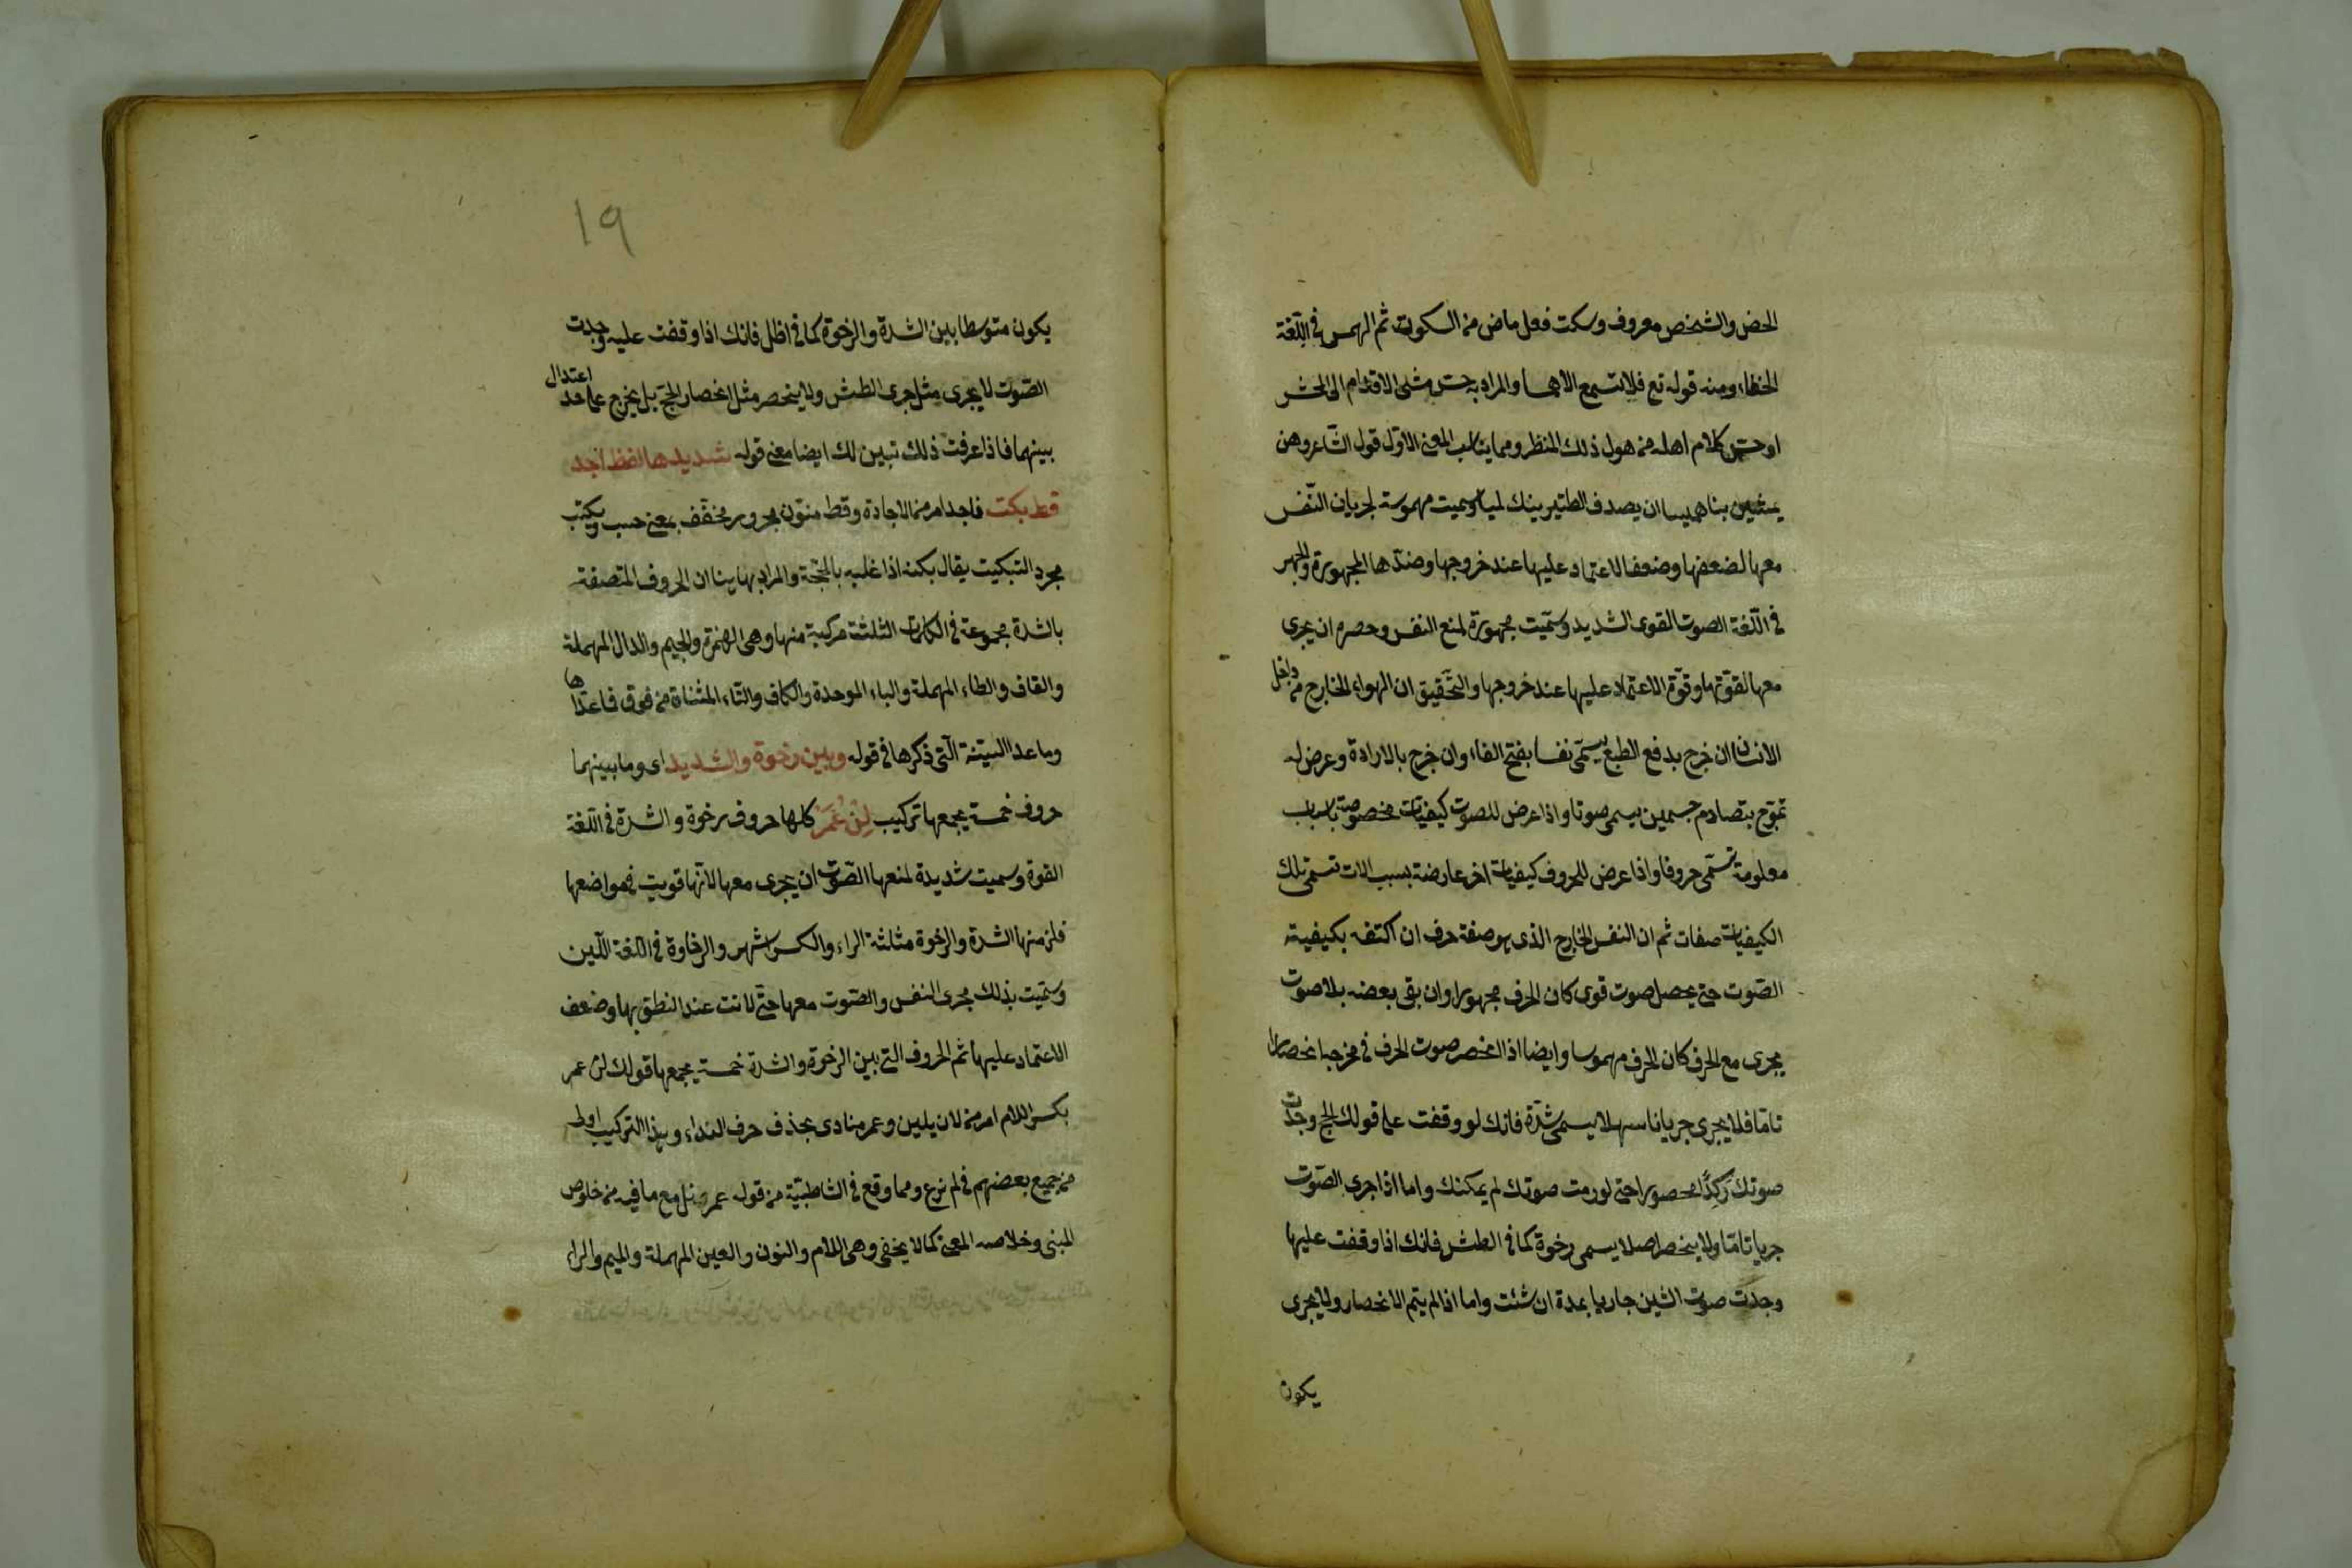 الحض والشخص معروف وسكت فعل ماض من السكوت ثم الهمس في اللّغة
الخفاء ومنه قوله تع فلا تسمع الا همسا والمراد به حس مشى الاقدام الى المحشر
او حس كلام اهله من هول ذلك المنظر ومما يناسب المعنى الاوّل قول الشاعر وهن
يمشين بنا هميسا ان يصدف الطير ينك لميسا وسميت مهموسة لجريان النّفس
معها لضعفها وضعف الاعتماد عليها عند خروجها وضدّها المجهورة والجهر
في اللّغة الصوت القوى الشديد وسمّيت مجهورة لمنع النفس وحصره ان يجرى
معها لقوّتها وقوّة الاعتماد عليها عند خروجها والتحقيق ان الهواء الخارج من داخل
الانسان ان خرج بدفع الطبع يسمّى نفسا بفتح الفاء وان خرج بالارادة وعرض له
تموّج بتصادم جسمين يسمى صوتا واذا عرض للصوت كيفيات مخصوصة باسباب
معلومة تسمّى حروفا واذا عرض للحروف كيفيات اخر عارضة بسبب الات تسمّى تلك
الكيفيات صفات ثم ان النفس الخارج الذى هو صفة حرف ان اكتفه بكيفية
الصّوت حتى يحصل صوت قوى كان الحرف مجهورا وان بقى بعضه بلا صوت
يجرى مع الحرف كان الحرف مهموسا وايضا اذا انحصر صوت الحرف في مخرجه انحصارا
تامّا فلا يجرى جريانا سهلا يسمى شدّة فانك لو وقفت على قولك الحج وجدت
صوتك ركدًا محصورا حتى لو رمت صوتك لم يمكنك واما اذا جرى الصّوت
جريا تامّا ولا ينحصر اصلا يسمى رخوة كما في الطش فانك اذا وقفت عليها
وجدت صوت الشين جاريا بمدة ان شئت واما اذا لم يتم الانحصار ولا يجرى
يكون
١٩
يكون متوسطا بين الشدة والرخوة كما في اظل فانك اذا وقفت عليه وجدت
الصّوت لا يجرى مثل جرى الطش ولا ينحصر مثل انحصار الحجّ بل يخرج على حد اعتدال
بينهما فاذا عرفت ذلك تبين لك ايضا معنى قوله شديدها لفظ اجد
قط بكت فاجد امر من الاجادة وقط منوّن مجرور مخفّف بمعنى حسب وبكت
مجرد التبكيت يقال بكته اذا غلبه بالحجّة والمراد بها بيان ان الحروف المتصفة
بالشدة مجموعة في الكلمات الثلث مركبة منها وهى الهمزة والجيم والدال المهملة
والقاف والطاء المهملة والباء الموحدة والكاف والتاء المثناة من فوق فاعداها
وما عدا الستة الّتى ذكرها في قوله وبين رخوة والشديد اى وما بينهما
حروف خمسة يجمعها تركيب لِنْ عُمَرْ كلها حروف رخوة والشدة في اللّغة
القوة وسميت شديدة لمنعها الصّوت ان يجرى معها لانها قويت في مواضعها
فلزمنها الشدة والرخوة مثلثة الراء والكسر اشهر والرخاوة في اللغة اللّين
وسمّيت بذلك مجرى النفس والصّوت معها حتّى لانت عند النطق بها وضعف
الاعتماد عليها ثم الحروف التى بين الرخوة والشدة خمسة يجمعها قولك لن عمر
بكسر اللام امر من لان يلين وعمر منادى بحذف حرف النداء وبهذا التركيب اولى
من جميع بعضهم في لم نرع ومما وقع في الشاطبيّة من قوله عمر نل مع ما فيه من خلوص
المبنى وخلاصه المعنى كما لا يخفى وهى اللام والنون والعين المهملة والميم والراء